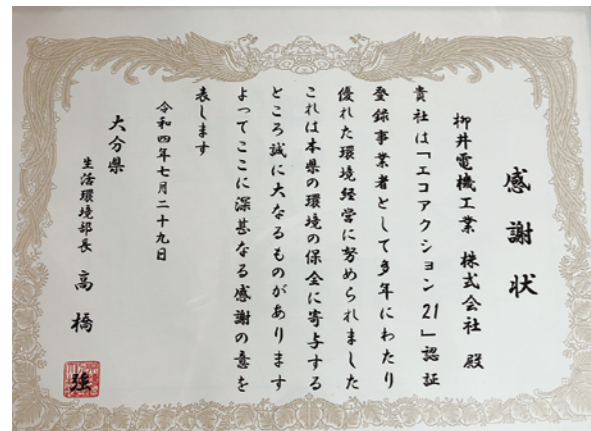 感謝状
柳井電機工業 株式会社 殿
貴社は「エコアクション21」認証
登録事業者として多年にわたり
優れた環境経営に努められました
これは本県の環境の保全に寄与する
ところ誠に大なるものがあります
よってここに深甚なる感謝の意を
表します
令和四年七月二十九日
大分県
生活環境部長 高橋 強